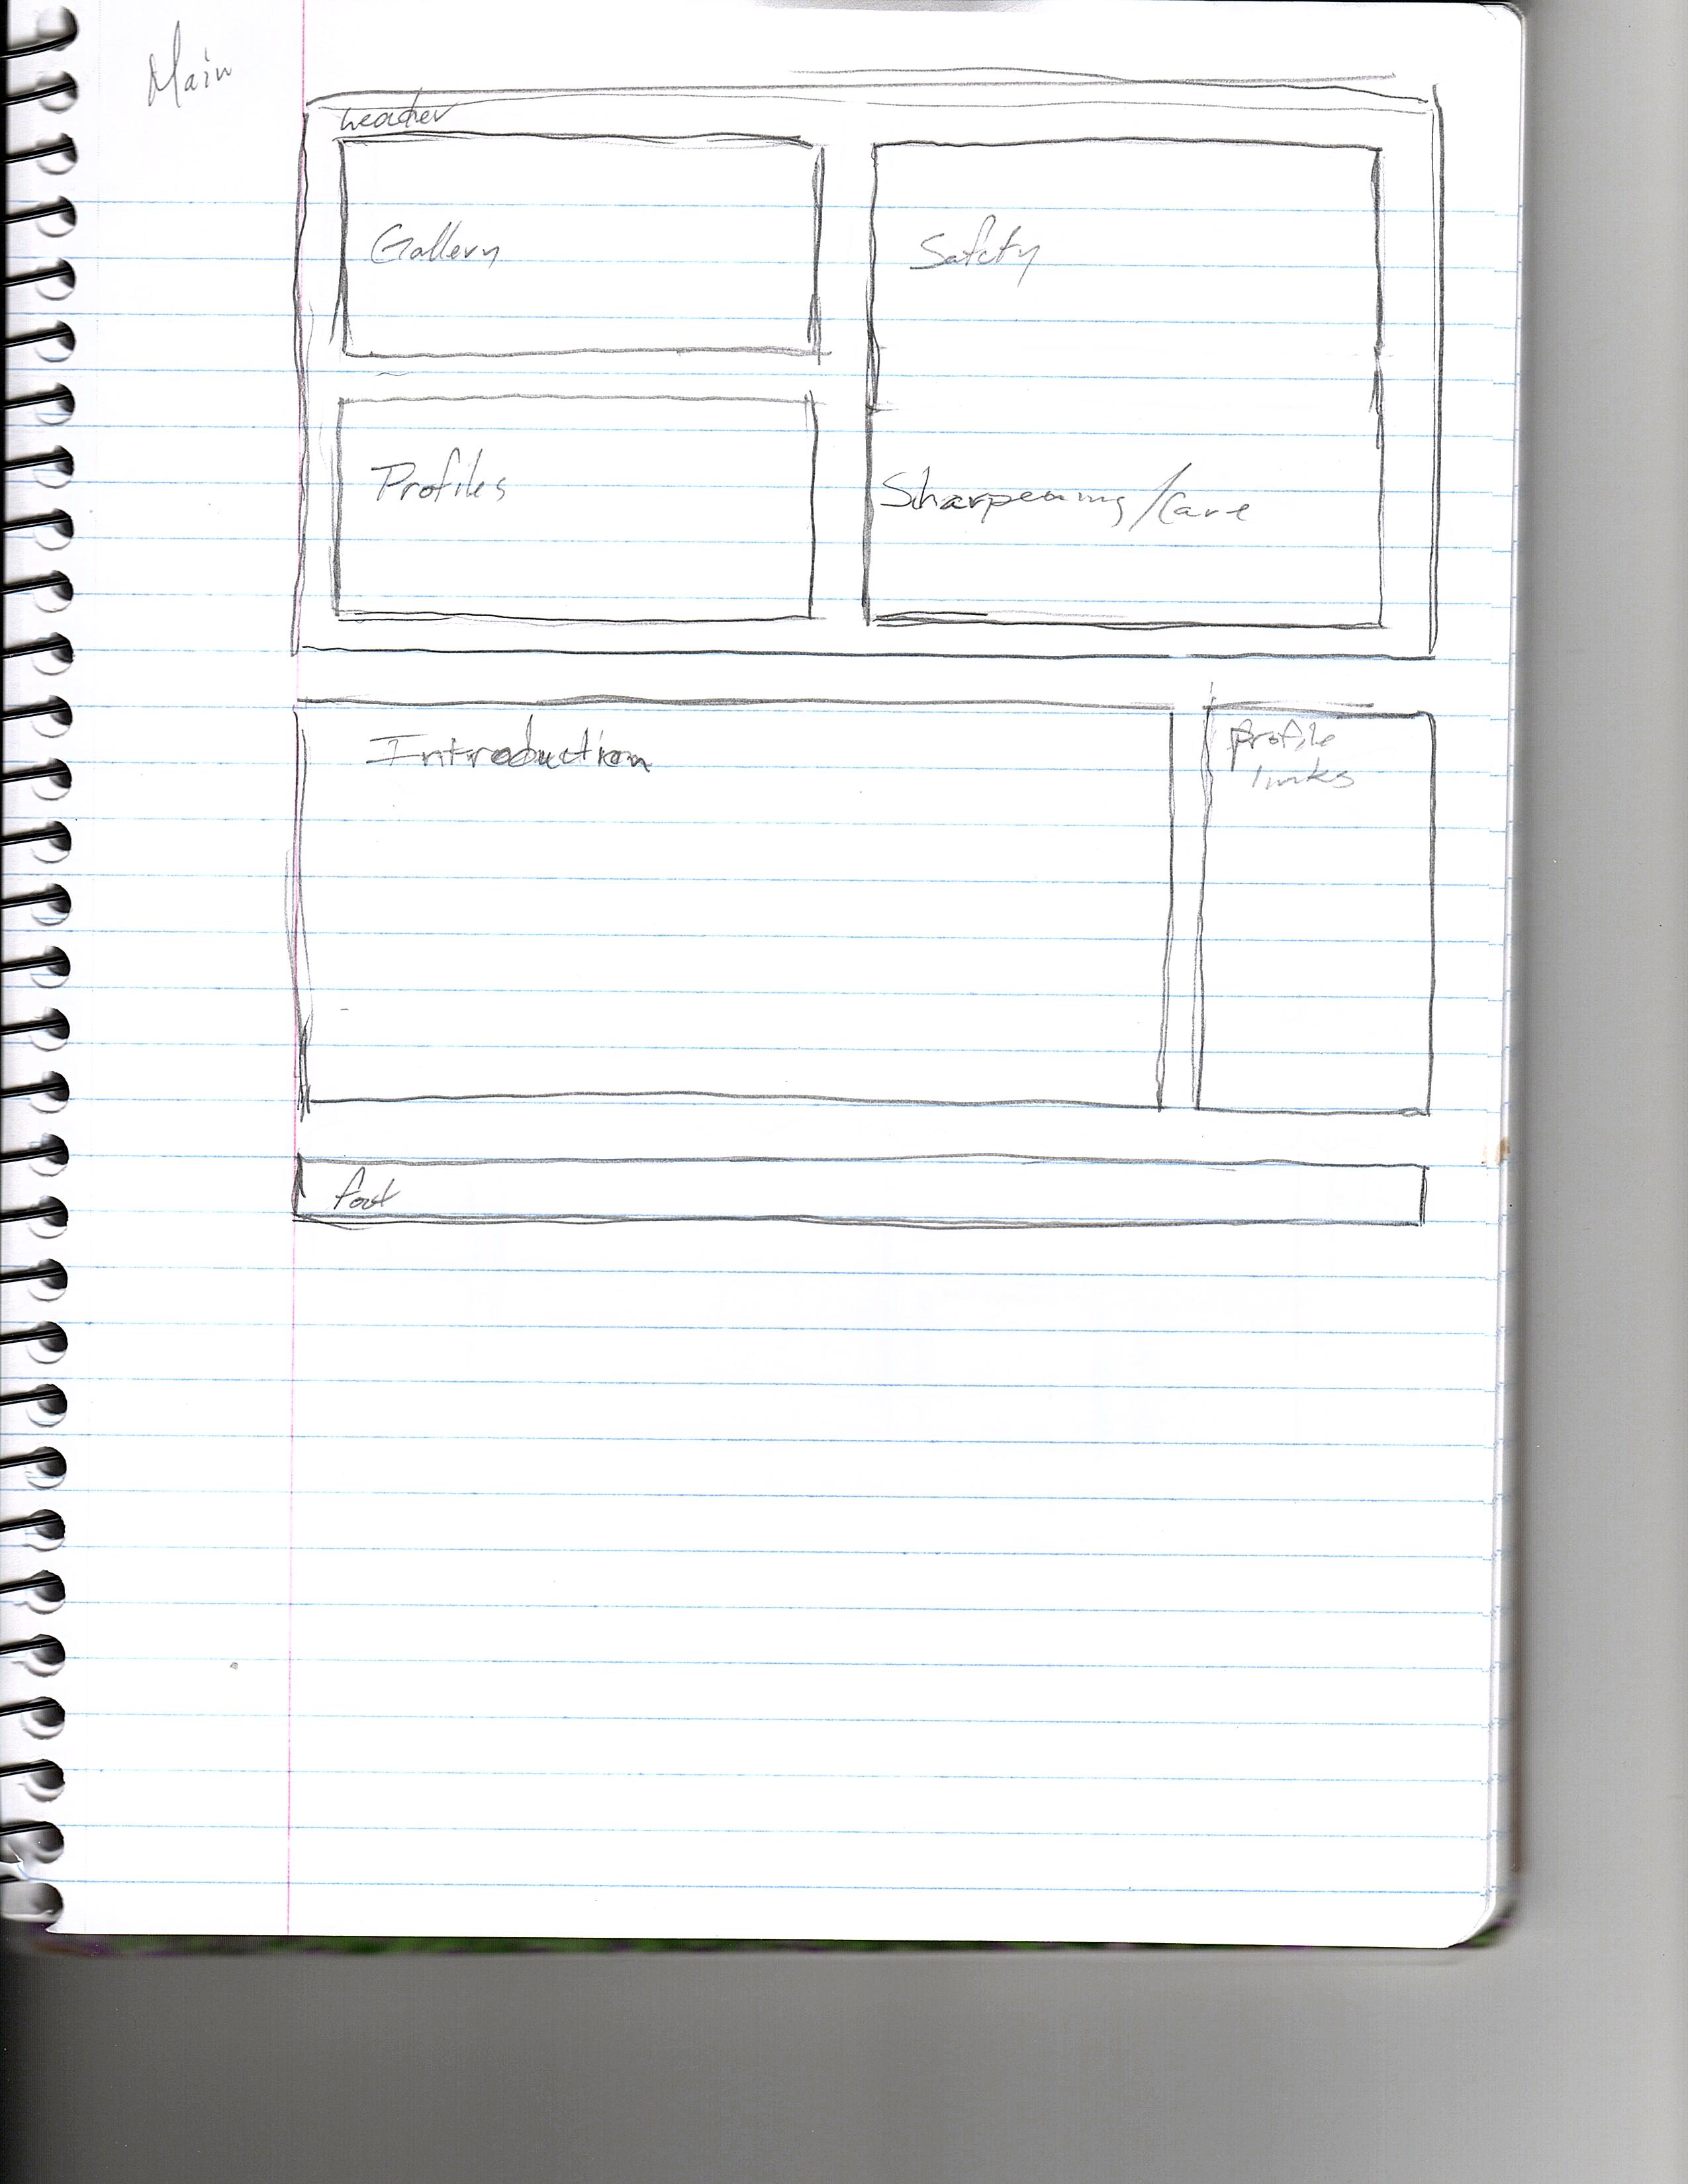 Main
header
Gallery
Safety
Profiles
Sharpening/Care
Introduction
profile
links
foot